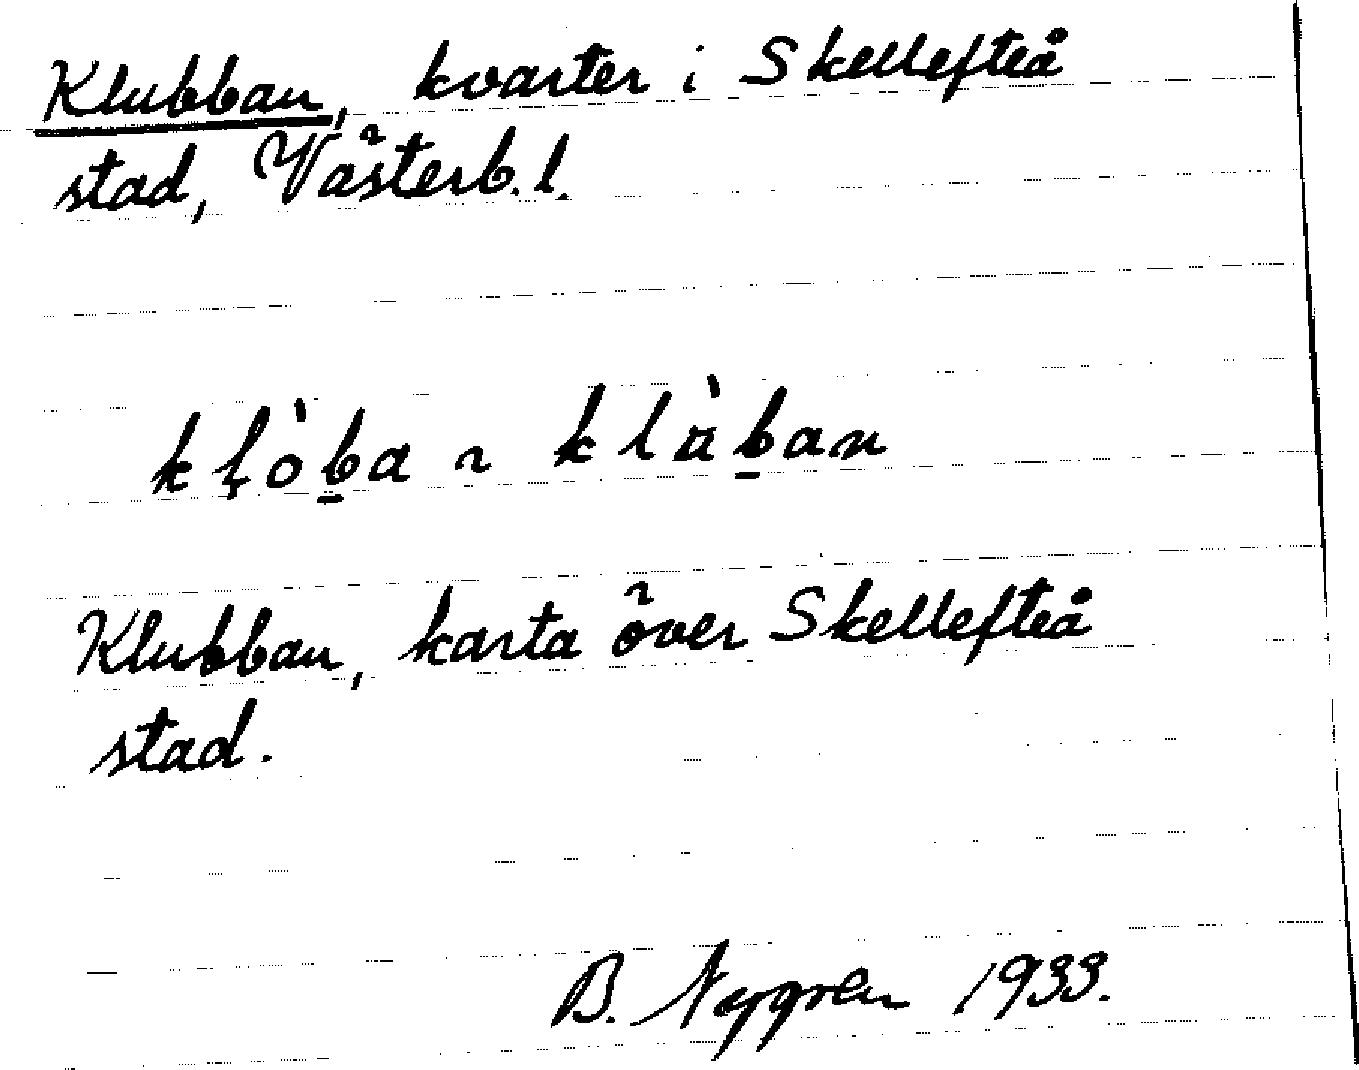 Klubban, kvarter i Skellefteå
stad, Västerb. l.
kḷò̱ba ~ klu̇̀ḇan
Klubban, karta över Skellefteå
stad.
B. Nygren 1933.